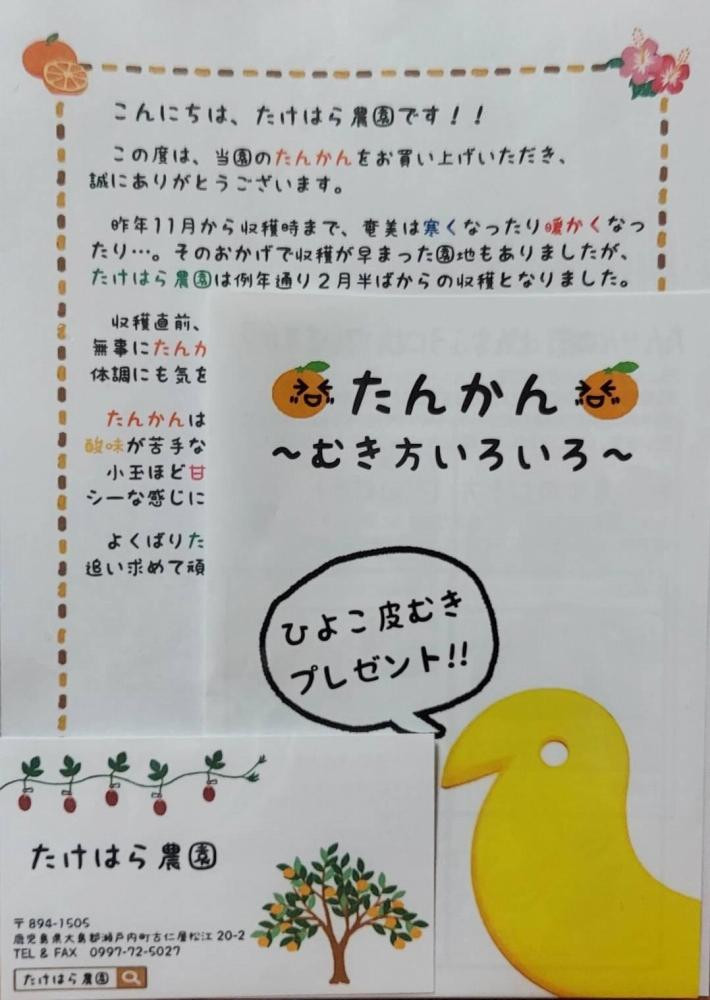 こんにちは、たけはら農園です！！
この度は、当園のたんかんをお買い上げいただき、
誠にありがとうございます。
昨年11月から収穫時まで、奄美は寒くなったり暖かくなっ
たり…。そのおかげで収穫が早まった園地もありましたが、
たけはら農園は例年通り２月半ばからの収穫となりました。
収穫直前、
無事にたんか
体調にも気を
たんかんは
酸味が苦手な
小玉ほど甘
シーな感じに
よくばりた
追い求めて頑
たんかん
～むき方いろいろ～
ひよこ皮むき
プレゼント!!
たけはら農園
〒894-1505
鹿児島県大島郡瀬戸内町古仁屋松江 20-2
TEL & FAX 0997-72-5027
たけはら農園